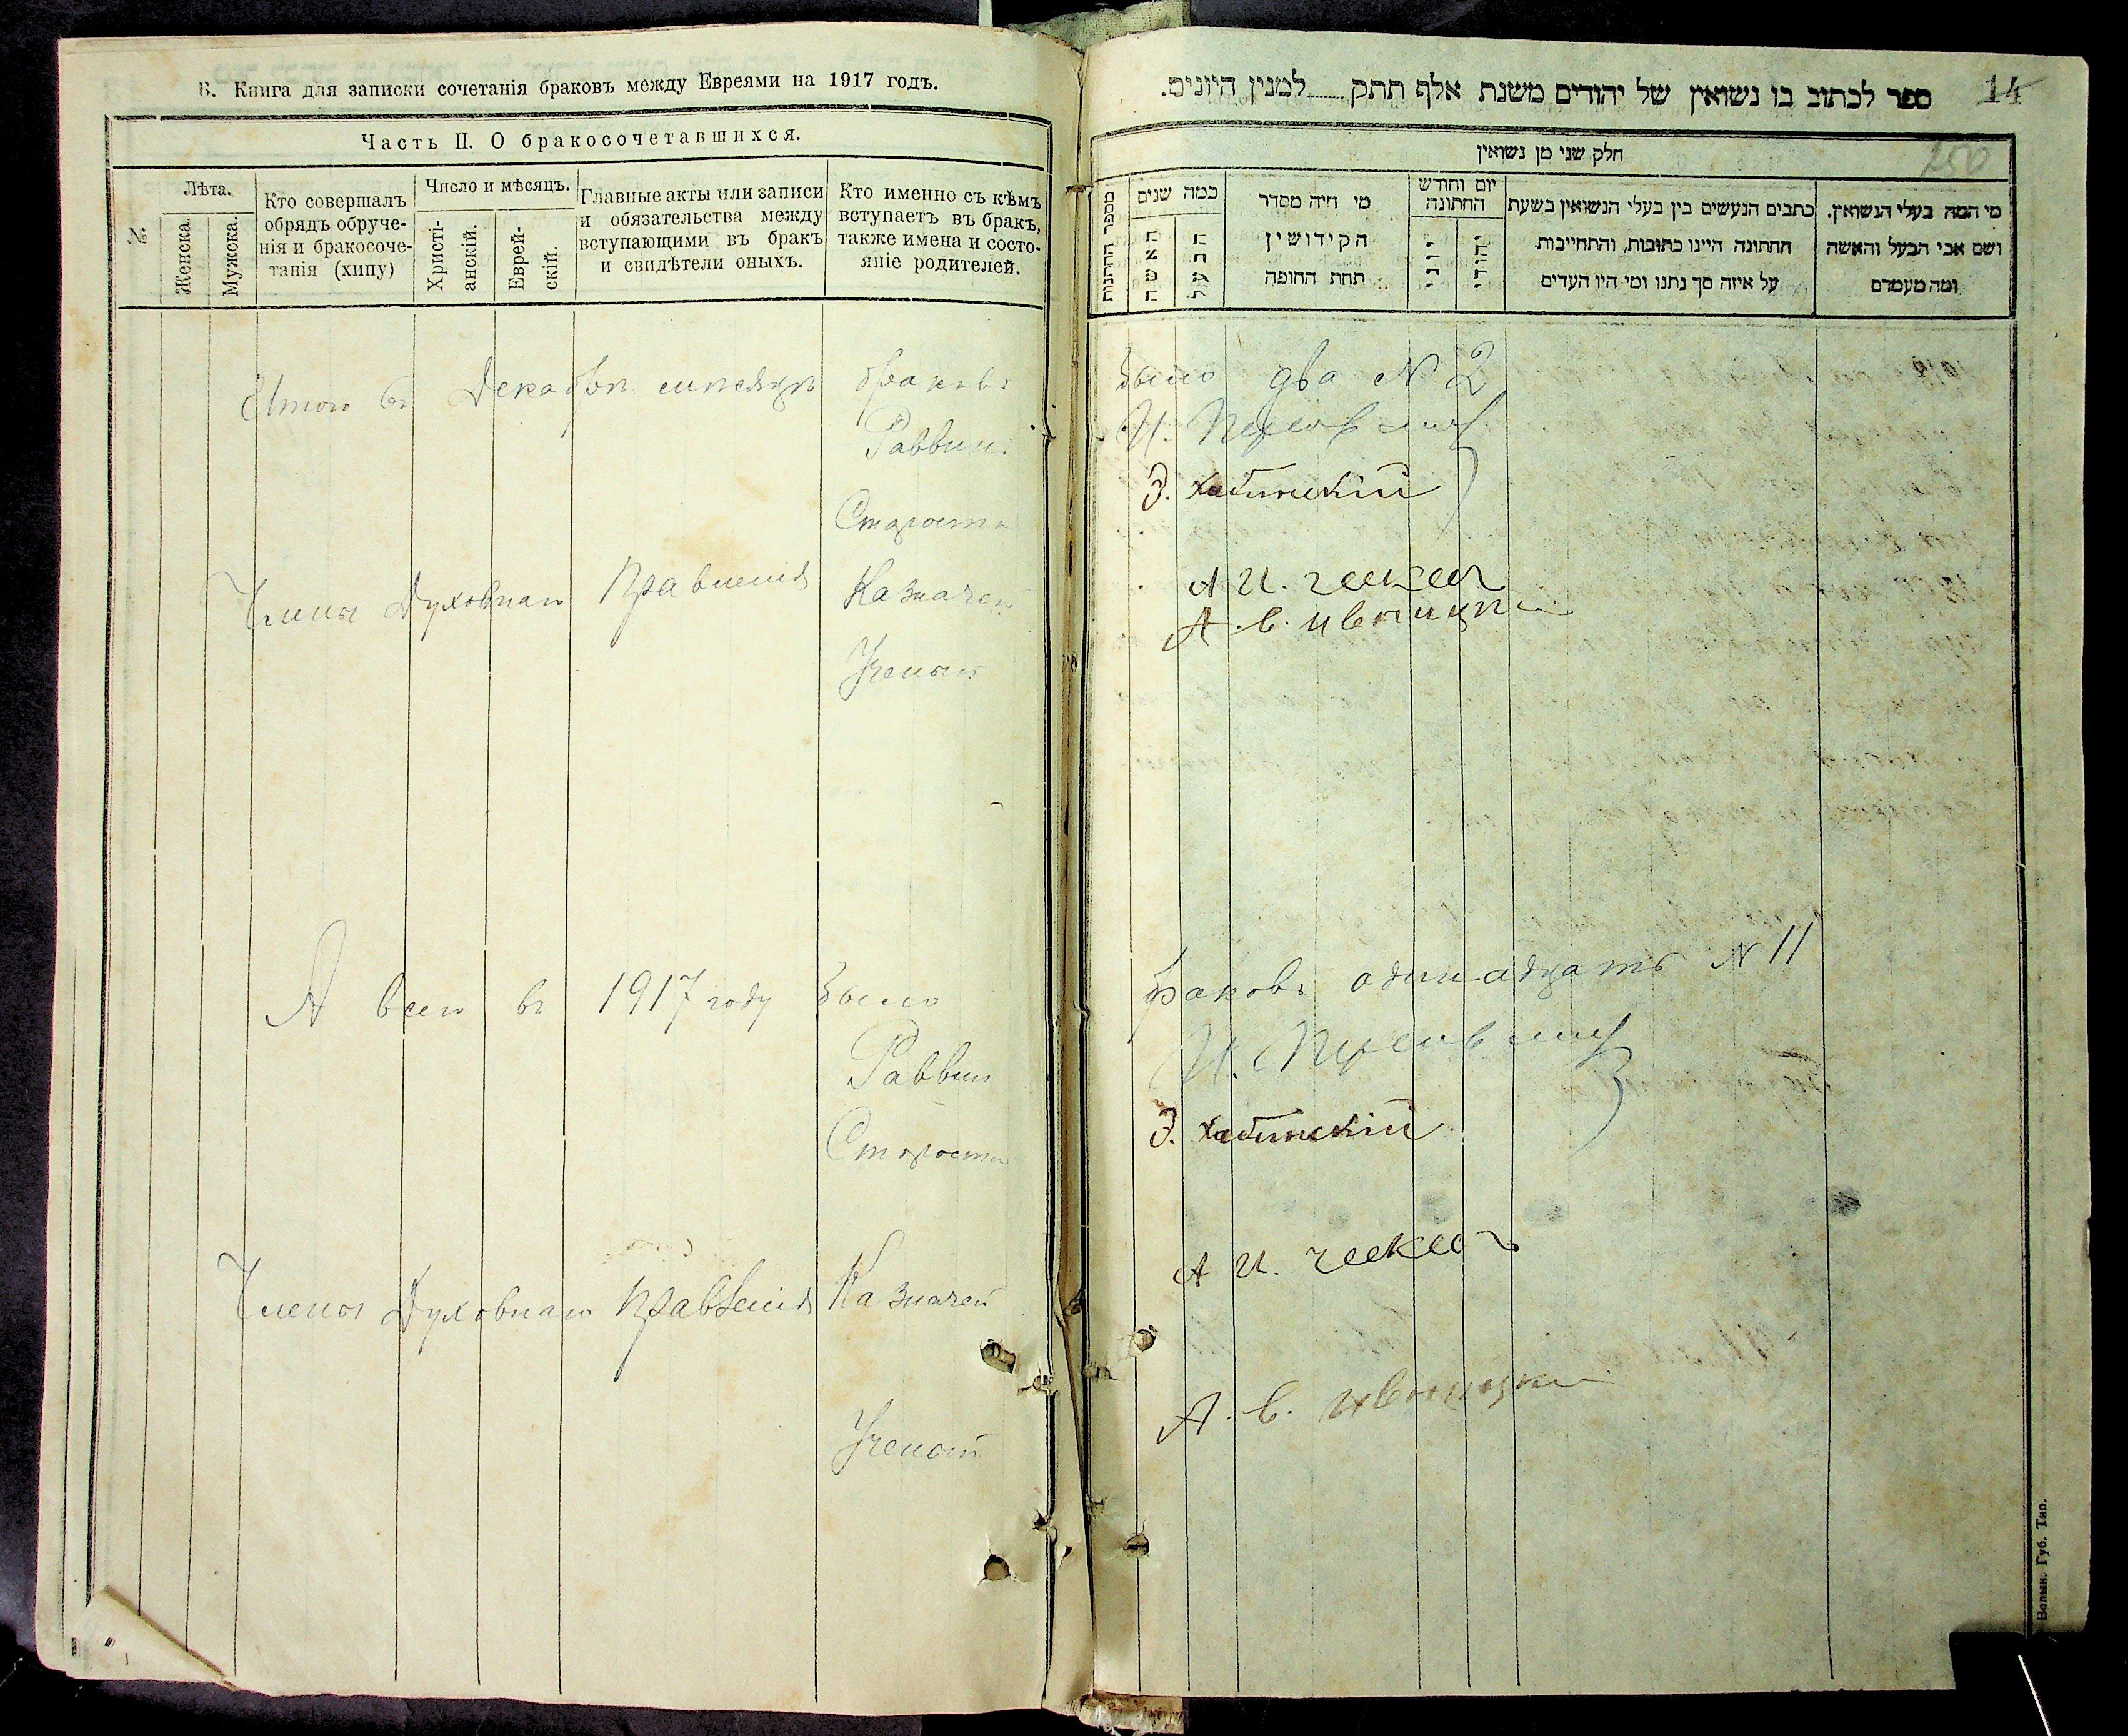 В. Книга для записки сочетанія браковъ между Евреями на 1917 годъ.
Часть II. О бракосочетавшихся.
№
Лѣта.
Женска.
Мужска.
Кто совершалъ
обрядъ обруче-
нія и бракосоче-
танія (хипу)
Число и мѣсяцъ.
Христі-
анскій.
Еврей-
скій.
Главные акты или записи
и обязательства между
вступающими въ бракъ
и свидѣтели оныхъ.
Кто именно съ кѣмъ
вступаетъ въ бракъ,
также имена и состо-
яніе родителей.
Итого въ Декабрѣ мѣсяцѣ браковъ
Раввинъ
Староста
Члены Духовнаго Правленія Казначей
Ученый
А всего въ 1917 году было
Раввин
Староста
Члены Духовнаго Правленія Казначей
Ученый
14
ספר לכתוב בו נשואין של יהודים משנת אלף תתק למנין היונים.
250
חלק שני מן נשואין
מספר החתונות
כמה שנים
האשה
הבעל
מי היה מסדר
הקידושין
תחת החופה
יום וחודש
החתונה
יוני
יהודי
כתבים הנעשים בין בעלי הנשואין בשעת
החתונה היינו כתובות, והתחייבות
על איזה סך נתנו ומי היו העדים
מי המה בעלי הנשואין.
ושם אבי הבעל והאשה
ומה מעמדם
было два N 2
И.
З. Хабинскій
А И.
А. В.
браковъ одинадцать N 11
И.
З. Хабинскій
А И.
А. В.
Волын. Губ. Тип.